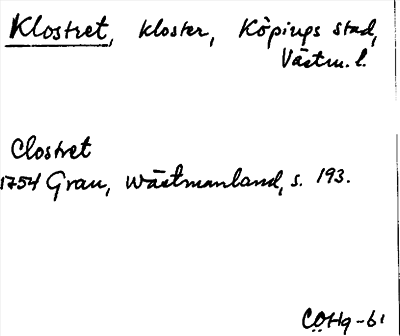 Klostret, kloster, Köpings stad,
Västm. l.
Clostret
1754 Grau, Wästmanland, s. 193.
CÖHg-61